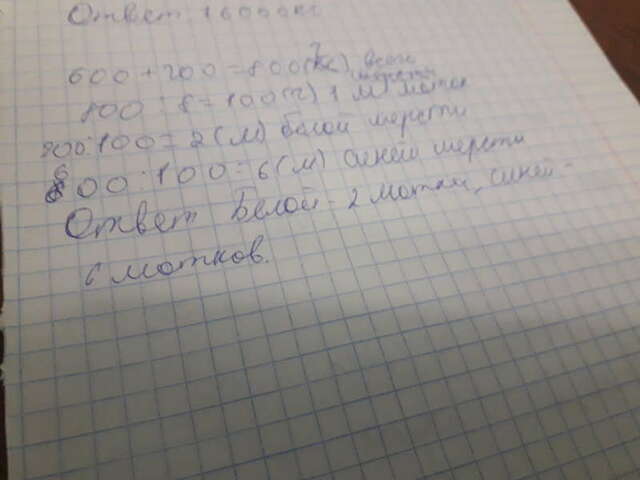 Ответ 16000кг
600 + 200 = 800(г) всего шерсти
800 : 8 = 100(г) 1 м моток
200:100= 2(м) белой шерсти
600:100=6(м) синей шерсти
Ответ Белой - 2 мотка, синей -
6 мотков.